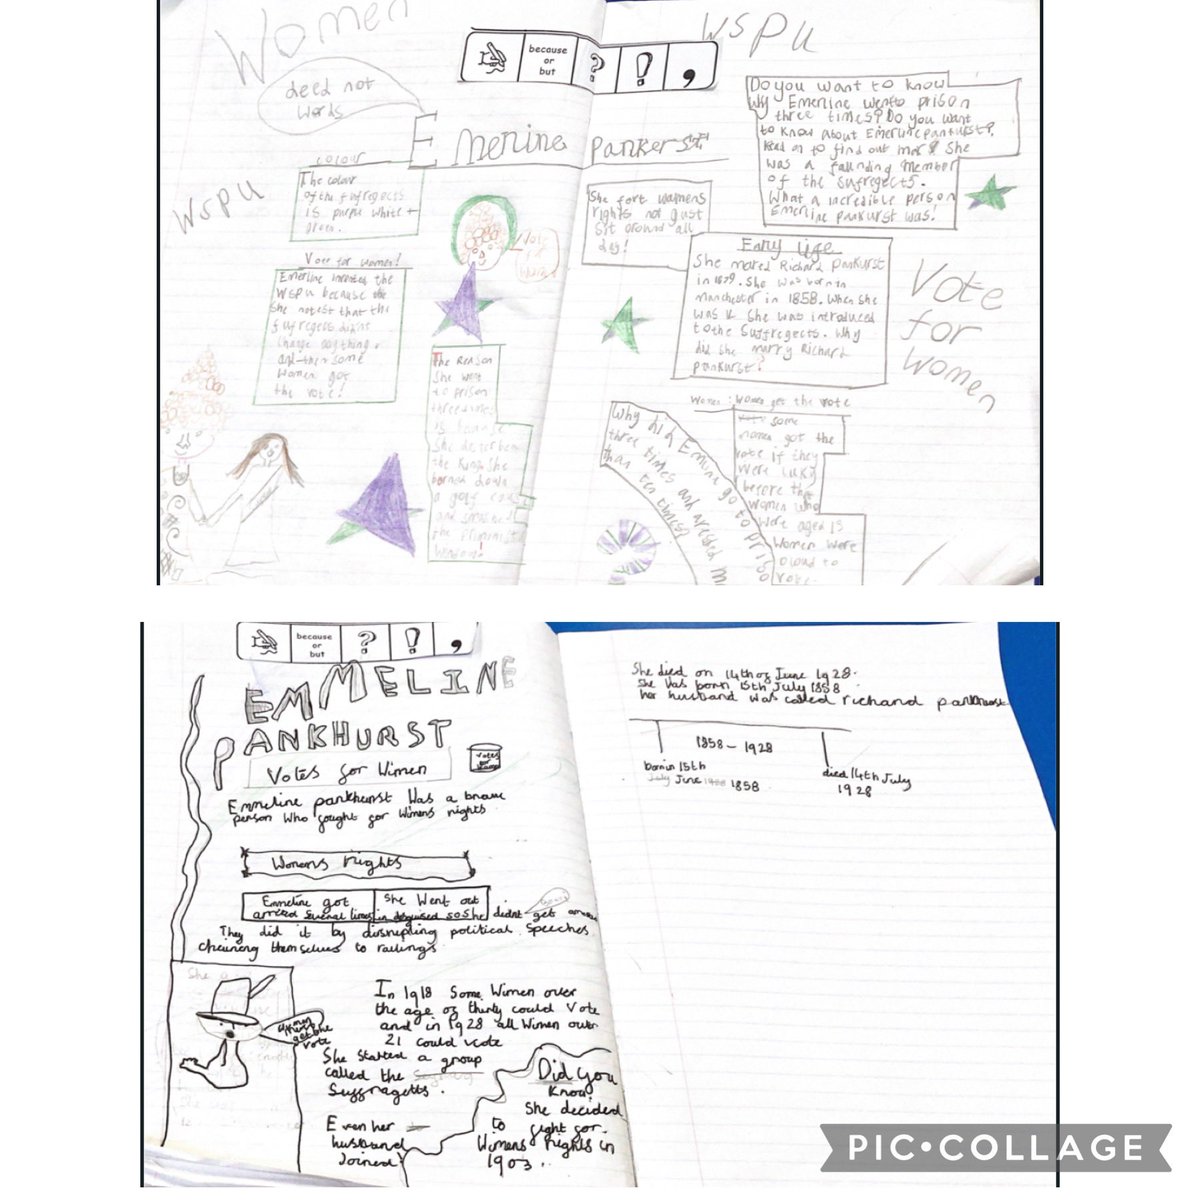 Women
WSPU
deed not
words
because
or
but
? ! ,
Emerline pankerst
colour
The colour
of the sufregects
is purple white +
green.
WSPU
Vote for women!
Emerline invented the
WSPU because
she notest that the
sufregects didns
change anything
and then some
women got
the vote!
Vote
for
women
The Reason
She went
to prison
three times
is
the King She
down
a golf
and smashed
the
She fort womens
rights not gust
sit around all
day!
Do you want to know
Why Emerline went to prison
three times? Do you want
to know about Emerline pankurst?
Read on to find out more. She
was a faunding member
of the sufregects.
What a incredible person
Emerline pankurst was!
Early life
She mared Richard pankurst
in 1879. She was born in
manchester in 1858. When she
was 14 She was introduced
to the suffregects. Why
did she marry Richard
pankurst?
Vote
for
women
Women: Women get the vote
some
women got the
vote if they
were luky
before the
women who
were aged 15
women were
aloud to
vote.
Why did Emerline go to prison
three times and arested more
than ten times?
because
or
but
? ! ,
EMMELINE
PANKHURST
Votes for Wimen
Votes
for
Emmeline pankhurst Was a brave
person who fought for Wimens rights.
Womens rights
Emmeline got
arrested several times
She Went out
in disguised so She didnt get
They did it by disrupting political speeches
chaining themselves to railings.
get the
vote
In 1918 Some Wimen over
the age of thirty could Vote
and in 1928 all Wimen over
21 could vote
She started a group
called the
Suffragetts.
Even her
husband
Joined.
Did you
know
She decided
to fight for
Wimens rights in
1903..
She died on 14th of June 1928.
She was born 15th July 1858
her husband was called richard pankhurst
1858 - 1928
born in 15th
July June 1858
died 14th July
1928
PIC•COLLAGE